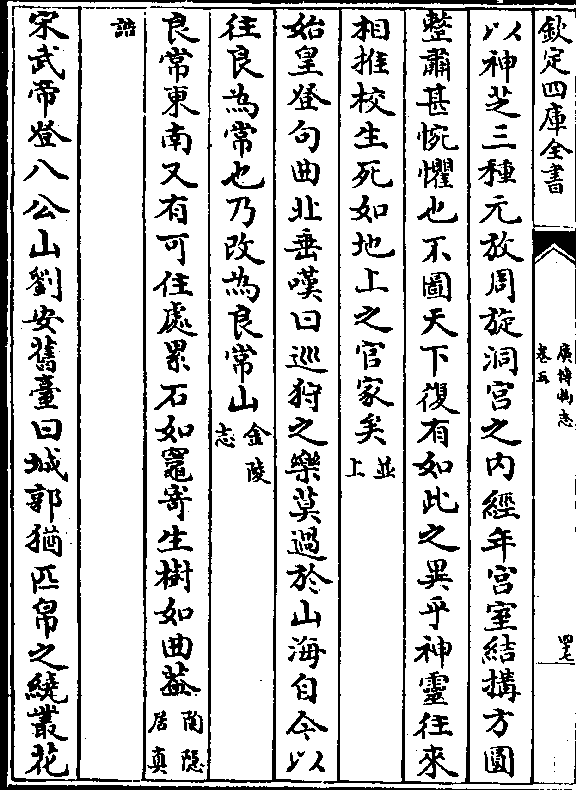 欽定四庫全書
廣博物志
卷五
四七
以神芝三種元放周旋洞宫之内經年宫室結搆方圓
整肅甚惋懼也不圖天下復有如此之異乎神靈往來
相推校生死如地上之官家矣並上
始皇登句曲北垂嘆曰巡狩之樂莫過於山海自今以
往良為常也乃改為良常山金陵志
良常東南又有可住處累石如竈寄生樹如曲葢陶隠居真
誥
宋武帝登八公山劉安舊臺曰城郭猶匹帛之繞叢花